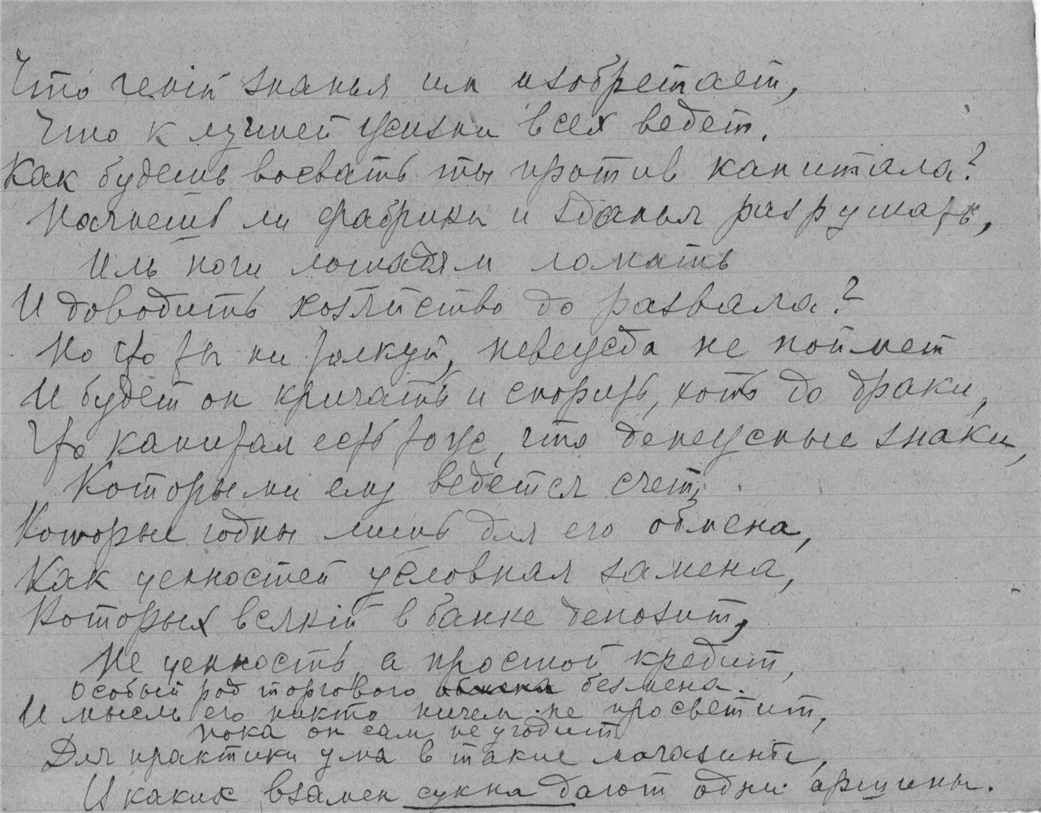 Что геній знанья им изобретает,
Что к лучшей жизни всех ведет.
Как будешь воевать ты против капитала?
Начнешь ли фабрики и зданья разрушать,
Иль ноги лошадям ломать
И доводить хозяйство до развала?
Но что ты ни толкуй, невежда не поймет
И будет он кричать и спорить, хоть до драки,
Что капитал есть тоже, что денежные знаки,
Которыми ему ведется счет,
Которые годны лишь для его обмена,
Как ценностей условная замена,
Которых всякій в банке депозит,
Не ценность, а простой кредит,
Особый род торгового обмена безмена.
И мысль его никто ничем не просветит,
пока он сам не угодит
Для практики ума в такие магазины,
И каких взамен сукна дают одни аршины.